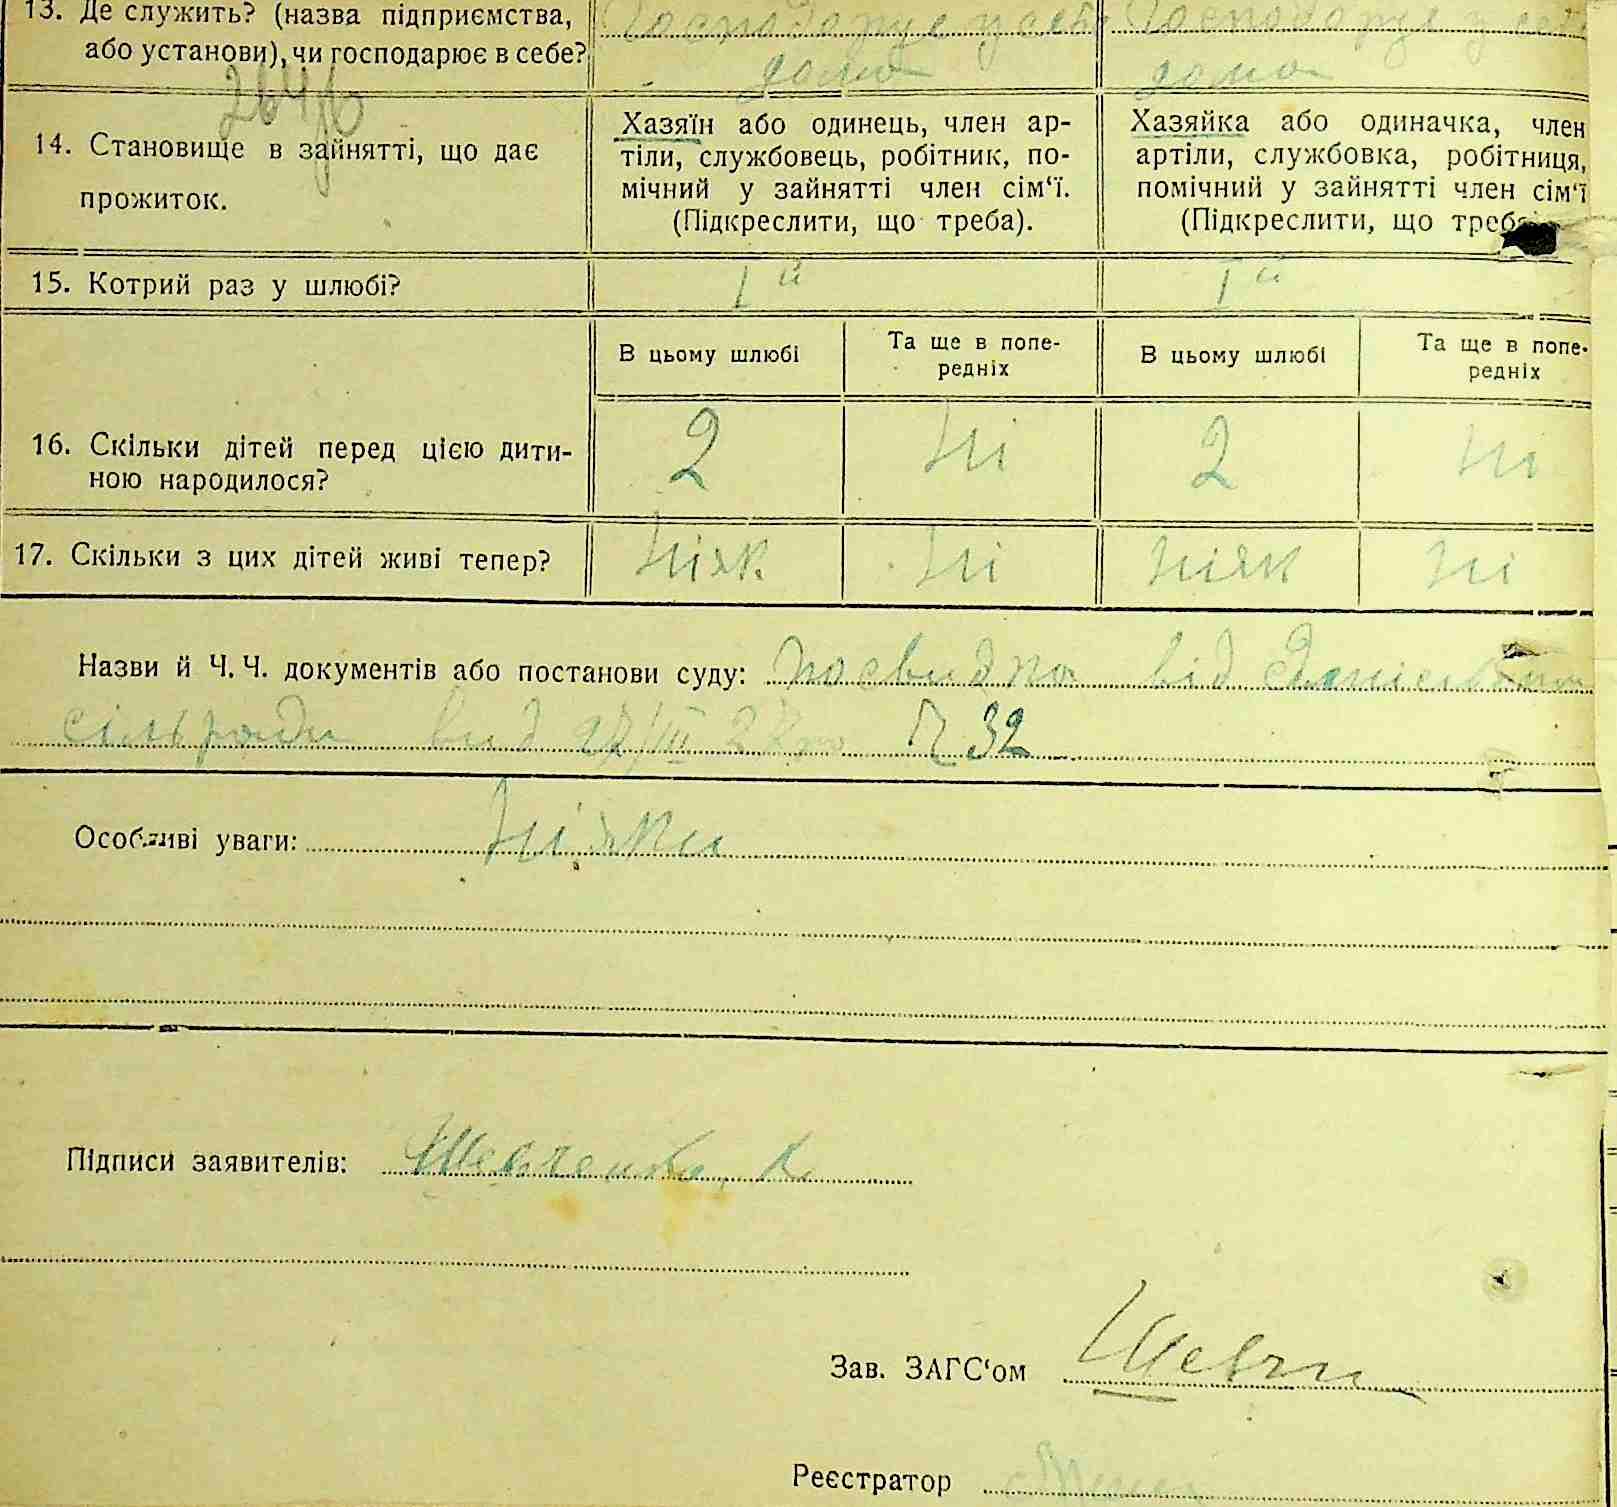 13. Де служить? (назва підприємства, Господарує у себе Господарує у себе
або установи), чи господарює в себе? дома дома
14. Становище в зайнятті, що дає
прожиток.
Хазяїн або одинець, член ар-
тіли, службовець, робітник, по-
мічний у зайнятті член сім‘ї.
(Підкреслити, що треба).
Хазяйка або одиначка, член
артіли, службовка, робітниця,
помічний у зайнятті член сім‘ї
(Підкреслити, що треба
15. Котрий раз у шлюбі? I й I й
В цьому шлюбі
Та ще в попе-
редніх
В цьому шлюбі
Та ще в попе-
редніх
16. Скільки дітей перед цією дити-
ною народилося?
2 Ні 2 Ні
17. Скільки з цих дітей живі тепер? Ніяк. Ні Ніяк Ні
Назви й Ч. Ч. документів або постанови суду: посвидка від
сільради вид 32
Особливі уваги: Ніяки
Підписи заявителів: Шевченко
Зав. ЗАГС‘ом Шевчен
Реєстратор